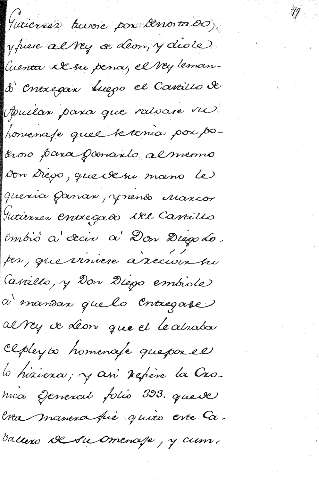 99
Gutierrez tuvose por denostado,
y fuese al Rey de Leon, y diole
cuenta de su pena, el Rey le man-
dó entregar luego el Castillo de
Aguilar para que salvase su
homenaje quel se tenia por po-
deroso para ganarlo al mesmo
Don Diego, que de su mano le
queria ganar, y viendo Marcos
Gutierrez entregado del Castillo
embió à decir à Don Diego Lo-
pez, que viniese à recivir su
Castillo, y Don Diego embiole
à mandar que lo entregase
al Rey de Leon que el le alzaba
el pleyto homenaje que por el
lo hiziera; y asi refiere la Cro-
nica General folio 393. que de
esta manera fue quito este Ca-
vallero de su omenaje, y cum-